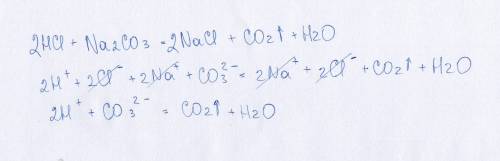 2HCl + Na2CO3 = 2NaCl + CO2↑ + H2O
2H⁺ + 2Cl⁻ + 2Na⁺ + CO3²⁻ = 2Na⁺ + 2Cl⁻ + CO2↑ + H2O
2H⁺ + CO3²⁻ = CO2↑ + H2O